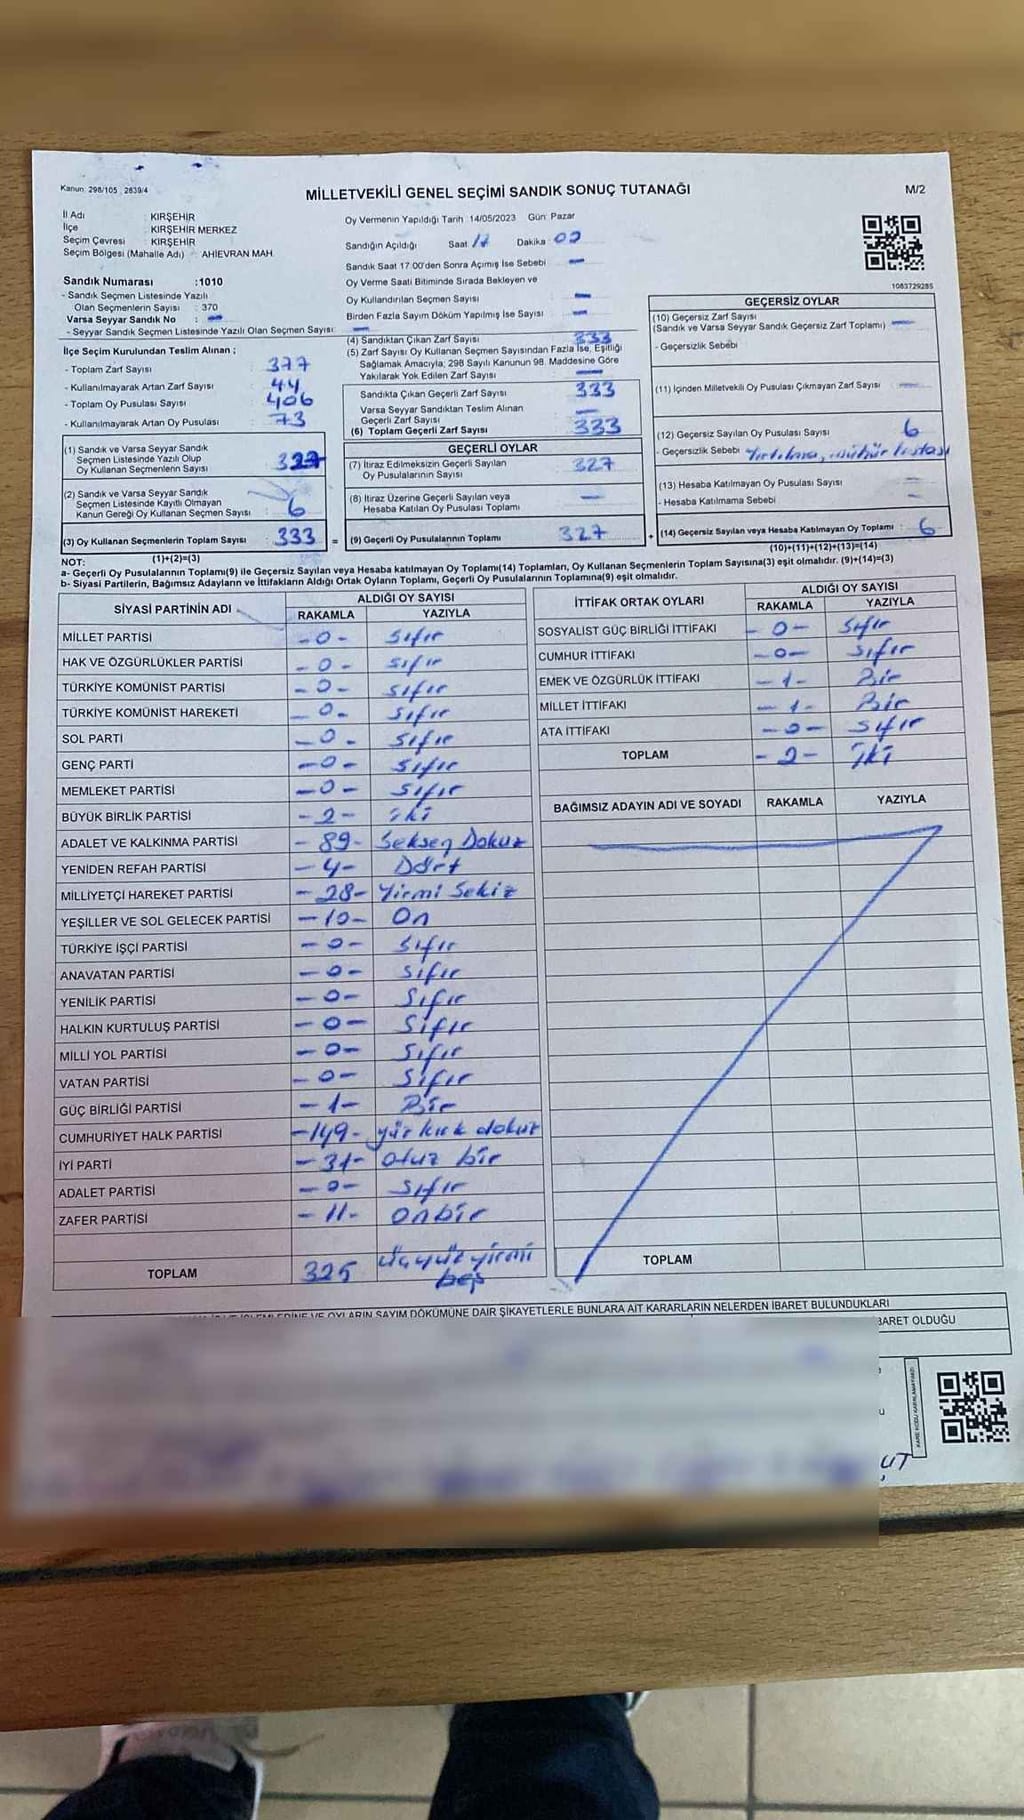 Kanun: 298/105 , 2839/4
MİLLETVEKİLİ GENEL SEÇİMİ SANDIK SONUÇ TUTANAĞI
M/2
İl Adı : KIRŞEHİR
İlçe : KIRŞEHİR MERKEZ
Seçim Çevresi : KIRŞEHİR
Seçim Bölgesi (Mahalle Adı) : AHIEVRAN MAH
Sandık Numarası :1010
- Sandık Seçmen Listesinde Yazılı
Olan Seçmenlerin Sayısı : 370
Varsa Seyyar Sandık No : -
- Seyyar Sandık Seçmen Listesinde Yazılı Olan Seçmen Sayısı: -
İlçe Seçim Kurulundan Teslim Alınan ;
- Toplam Zarf Sayısı : 377
- Kullanılmayarak Artan Zarf Sayısı : 44
- Toplam Oy Pusulası Sayısı : 406
- Kullanılmayarak Artan Oy Pusulası : 73
(1) Sandık ve Varsa Seyyar Sandık
Seçmen Listesinde Yazılı Olup
Oy Kullanan Seçmenlerin Sayısı : 327
(2) Sandık ve Varsa Seyyar Sandık
Seçmen Listesinde Kayıtlı Olmayan
Kanun Gereği Oy Kullanan Seçmen Sayısı : 6
(3) Oy Kullanan Seçmenlerin Toplam Sayısı : 333
(1)+(2)=(3)
Oy Vermenin Yapıldığı Tarih 14/05/2023 Gün: Pazar
Sandığın Açıldığı Saat 17 Dakika 00
Sandık Saat 17.00'den Sonra Açımış İse Sebebi -
Oy Verme Saati Bitiminde Sırada Bekleyen ve
Oy Kullandırılan Seçmen Sayısı -
Birden Fazla Sayım Döküm Yapılmış İse Sayısı -
(4) Sandıktan Çıkan Zarf Sayısı 333
(5) Zarf Sayısı Oy Kullanan Seçmen Sayısından Fazla İse, Eşitliği
Sağlamak Amacıyla; 298 Sayılı Kanunun 98. Maddesine Göre
Yakılarak Yok Edilen Zarf Sayısı -
Sandıkta Çıkan Geçerli Zarf Sayısı 333
Varsa Seyyar Sandıktan Teslim Alınan
Geçerli Zarf Sayısı -
(6) Toplam Geçerli Zarf Sayısı 333
GEÇERLİ OYLAR
(7) İtiraz Edilmeksizin Geçerli Sayılan
Oy Pusulalarının Sayısı 327
(8) İtiraz Üzerine Geçerli Sayılan veya
Hesaba Katılan Oy Pusulası Toplamı -
= (9) Geçerli Oy Pusulalarının Toplamı 327
1083729285
GEÇERSİZ OYLAR
(10) Geçersiz Zarf Sayısı
(Sandık ve Varsa Seyyar Sandık Geçersiz Zarf Toplamı) -
- Geçersizlik Sebebi
(11) İçinden Milletvekili Oy Pusulası Çıkmayan Zarf Sayısı -
(12) Geçersiz Sayılan Oy Pusulası Sayısı 6
- Geçersizlik Sebebi Yırtılma, mühür
(13) Hesaba Katılmayan Oy Pusulası Sayısı -
- Hesaba Katılmama Sebebi -
+ (14) Geçersiz Sayılan veya Hesaba Katılmayan Oy Toplamı : 6
(10)+(11)+(12)+(13)=(14)
NOT:
a- Geçerli Oy Pusulalarının Toplamı(9) ile Geçersiz Sayılan veya Hesaba katılmayan Oy Toplamı(14) Toplamları, Oy Kullanan Seçmenlerin Toplam Sayısına(3) eşit olmalıdır. (9)+(14)=(3)
b- Siyasi Partilerin, Bağımsız Adayların ve İttifakların Aldığı Ortak Oyların Toplamı, Geçerli Oy Pusulalarının Toplamına(9) eşit olmalıdır.
SİYASİ PARTİNİN ADI
ALDIĞI OY SAYISI
RAKAMLA YAZIYLA
MİLLET PARTİSİ -0- Sıfır
HAK VE ÖZGÜRLÜKLER PARTİSİ -0- Sıfır
TÜRKİYE KOMÜNİST PARTİSİ -0- Sıfır
TÜRKİYE KOMÜNİST HAREKETİ -0- Sıfır
SOL PARTİ -0- Sıfır
GENÇ PARTİ -0- Sıfır
MEMLEKET PARTİSİ -0- Sıfır
BÜYÜK BİRLİK PARTİSİ -2- iki
ADALET VE KALKINMA PARTİSİ -89- Seksen Dokuz
YENİDEN REFAH PARTİSİ -4- Dört
MİLLİYETÇİ HAREKET PARTİSİ -28- Yirmi Sekiz
YEŞİLLER VE SOL GELECEK PARTİSİ -10- On
TÜRKİYE İŞÇİ PARTİSİ -0- Sıfır
ANAVATAN PARTİSİ -0- Sıfır
YENİLİK PARTİSİ -0- Sıfır
HALKIN KURTULUŞ PARTİSİ -0- Sıfır
MİLLİ YOL PARTİSİ -0- Sıfır
VATAN PARTİSİ -0- Sıfır
GÜÇ BİRLİĞİ PARTİSİ -1- Bir
CUMHURİYET HALK PARTİSİ -149- yüz kırk dokuz
İYİ PARTİ -31- Otuz bir
ADALET PARTİSİ -0- Sıfır
ZAFER PARTİSİ -11- Onbir
TOPLAM 325 üçyüz yirmi
beş
İTTİFAK ORTAK OYLARI
ALDIĞI OY SAYISI
RAKAMLA YAZIYLA
SOSYALIST GÜÇ BİRLİĞİ İTTİFAKI -0- Sıfır
CUMHUR İTTİFAKI -0- Sıfır
EMEK VE ÖZGÜRLÜK İTTİFAKI -1- Bir
MİLLET İTTİFAKI -1- Bir
ATA İTTİFAKI -0- Sıfır
TOPLAM -2- İki
BAĞIMSIZ ADAYIN ADI VE SOYADI RAKAMLA YAZIYLA
TOPLAM
İŞLEMLERİNE VE OYLARIN SAYIM DÖKÜMÜNE DAİR ŞİKAYETLERLE BUNLARA AİT KARARLARIN NELERDEN İBARET BULUNDUKLARI
BARET OLDUĞU